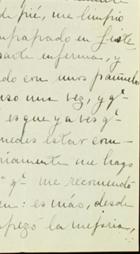 de pié, me limpió
empapado en
enferma, y
do con unos pañuelos
una vez, y qᵉ
es que ya ves qᵉ
puedes estar com-
riamente me hago
qᵉ me recomendó
en: es más, desde
pezó la mejoría,